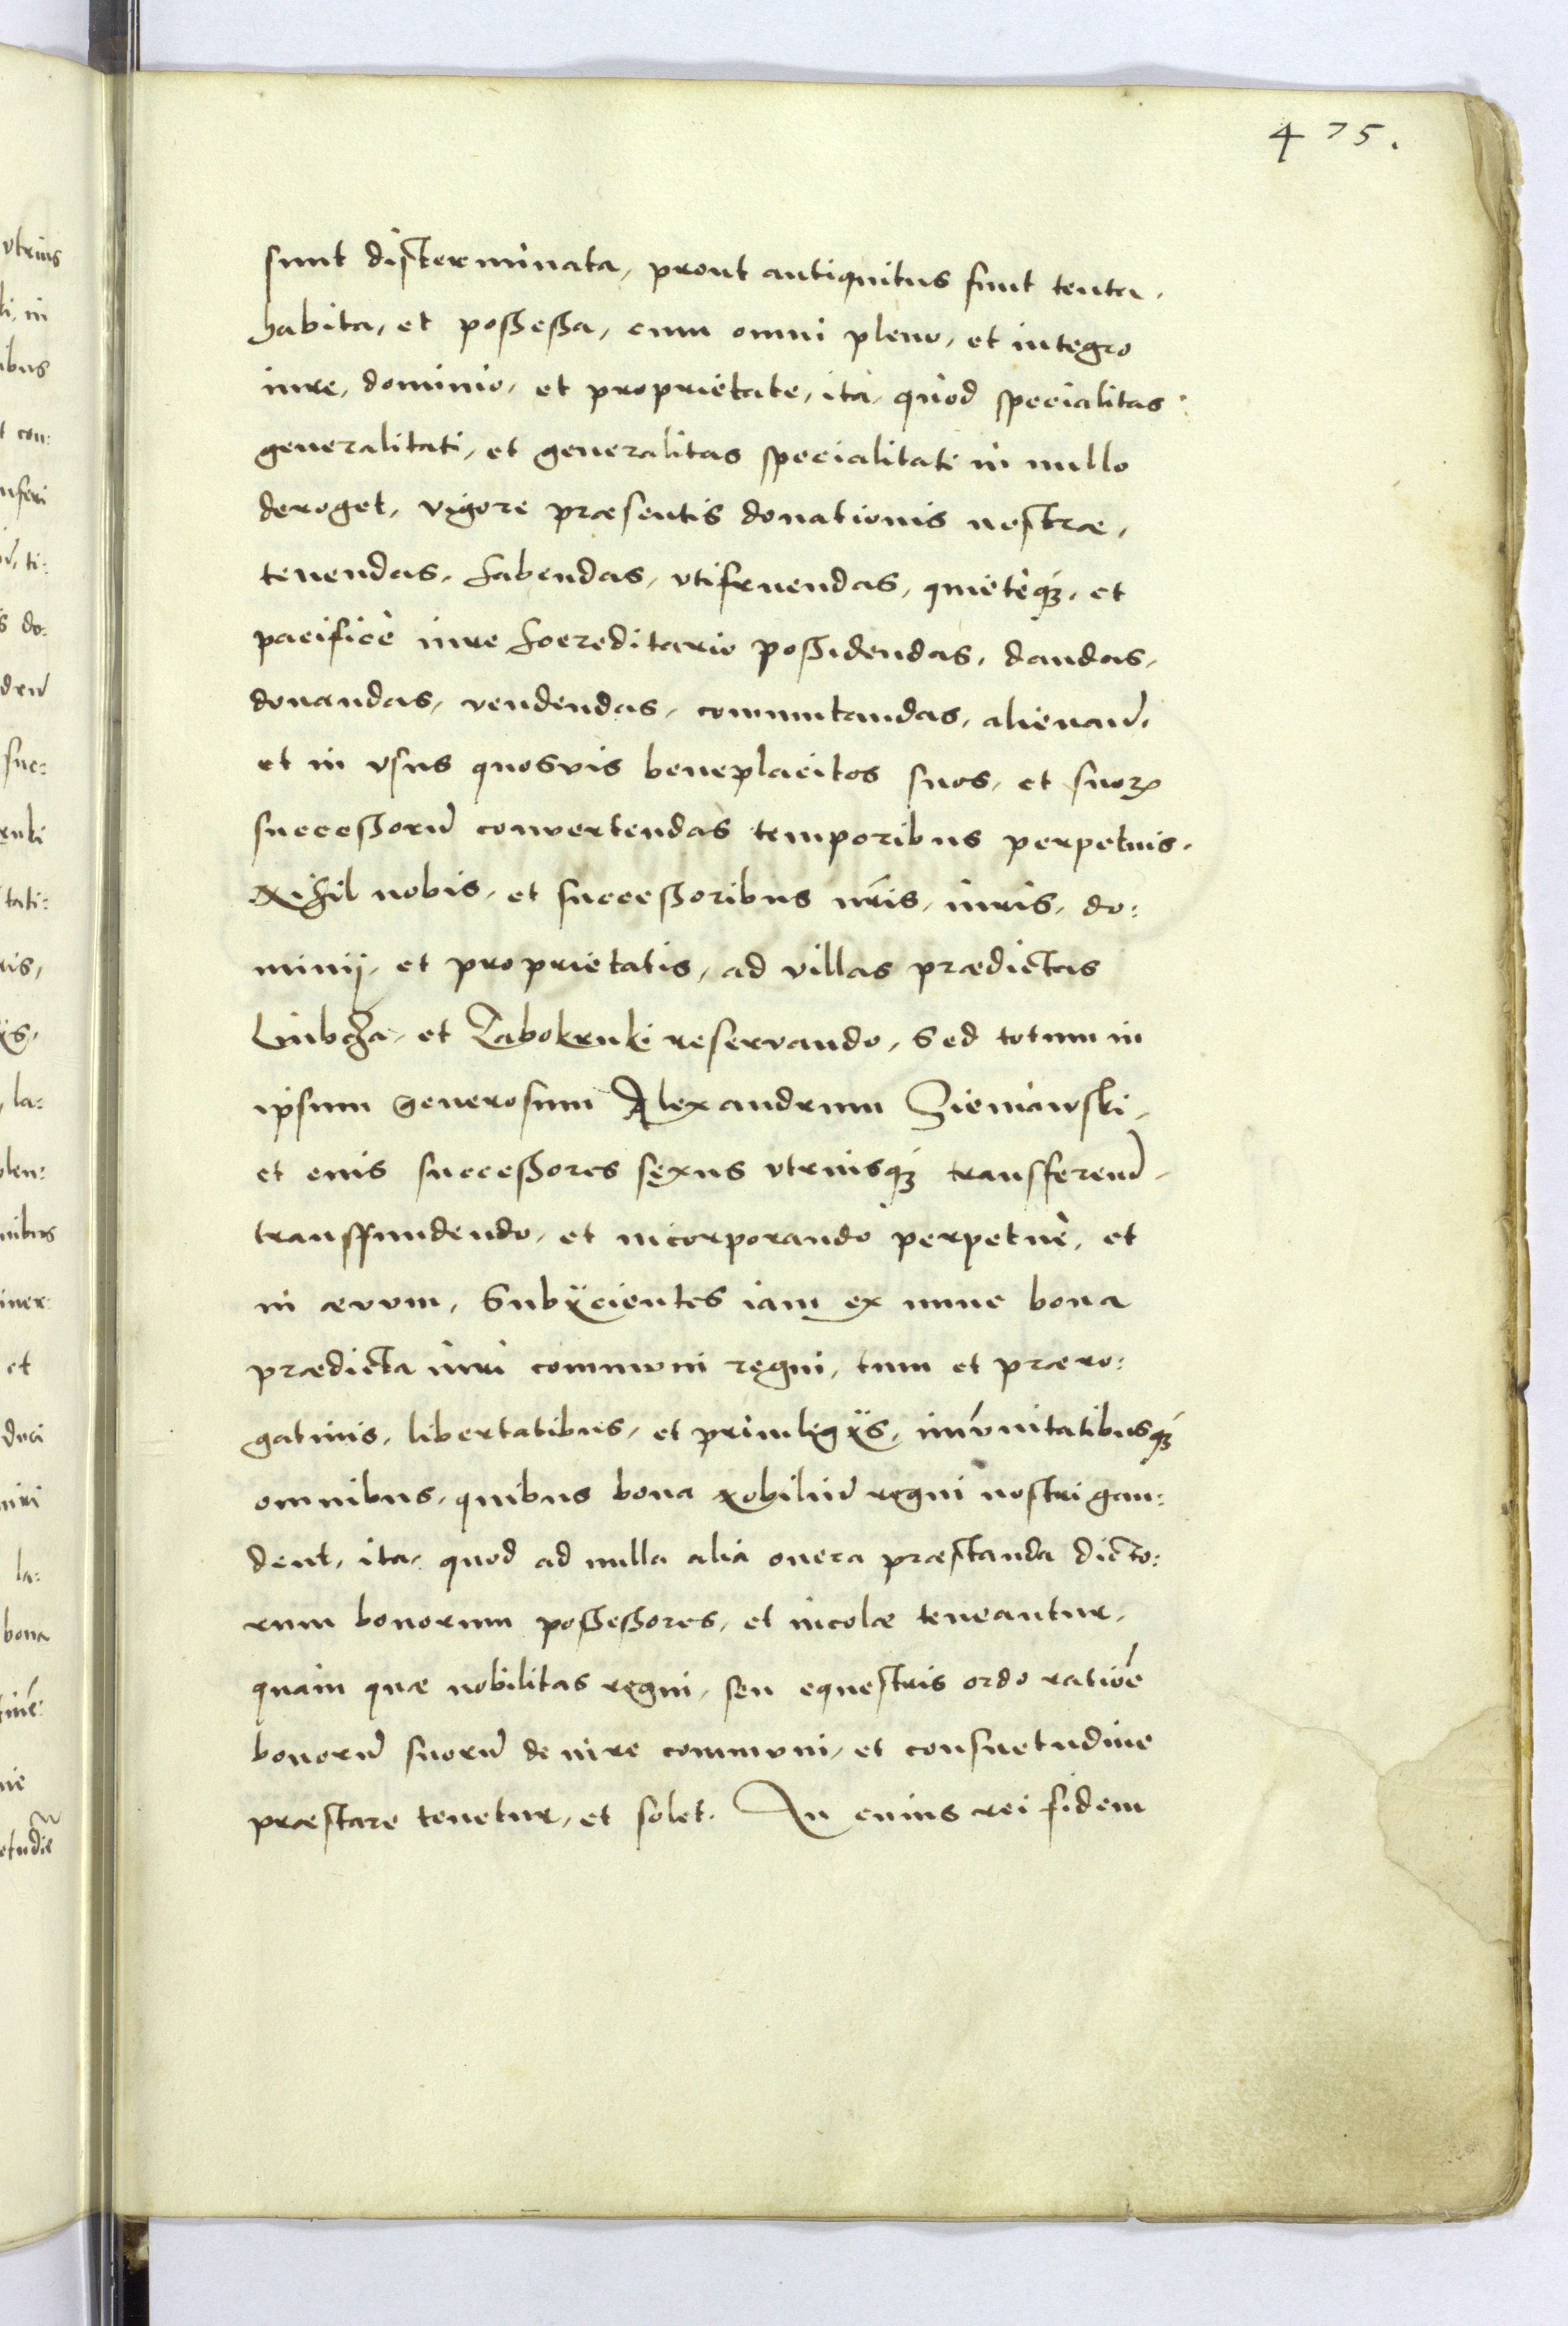 475.
sunt disterminata, prout antiquitus sunt tenta,
habita, et possessa, cum omni pleno, et integro
iure, dominio, et proprietate, ita, quòd specialitas
generalitati, et generalitas specialitati in nullo
deroget, vigore præsentis donationis nostræ,
tenendas, habendas, vtifruendas, quietèq́ꝫ, et
pacificè iure hoereditario possidendas, dandas,
donandas, vendendas, commutandas, alienand̃,
et in vsus quosvis beneplacitos suos, et suorꝝ
successorũ convertendas temporibus perpetuis.
Nihil nobis, et successoribus nr̃is, iuris, do:
minij, et proprietatis, ad villas prædictas
Liubcza, et Zabokruki reservando, Sed totum in
ipsum Generosum Alexandrum Sieniawski,
et eius successores sexus vtriusq́ꝫ transferend̃,
transfundendo, et incorporando perpetuè, et
in ævvm, Subijcientes iam ex nunc bona
prædicta iuri commvni regni, tum et præro:
gatiuis, libertatibus, et priuilegijs, im̃vnitatibusq́ꝫ
omnibus, quibus bona Nobiliũ regni nostri gau:
dent, ita, quod ad nulla alia onera præstanda dicto:
rum bonorum possessores, et incolæ teneantur,
quàm quæ nobilitas regni, seu equestris ordo ratiõe
bonorũ suorũ de iure commvni, et consuetudine
præstare tenetur, et solet. In cuius rei fidem